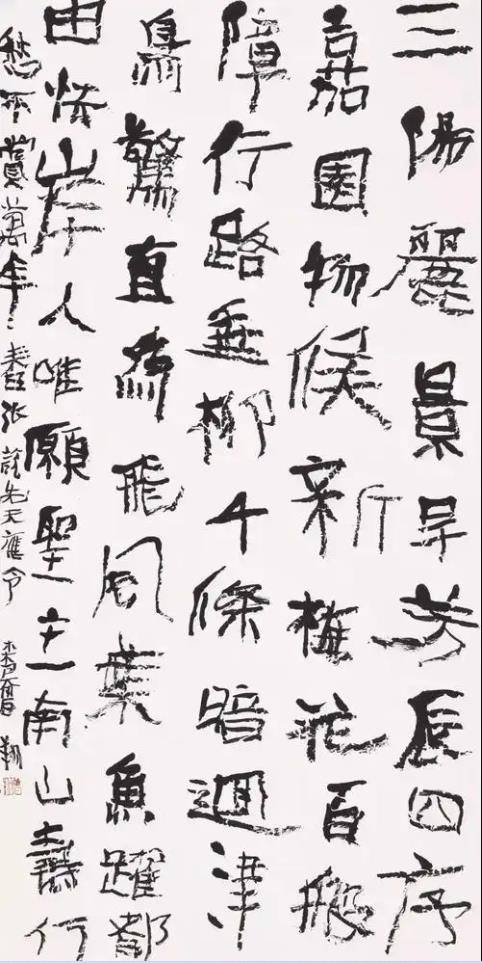 三陽麗景早芳辰四序
嘉園物候新梅花百般
障行路垂柳千條暗迴津
鳥驚直為飛風葉魚躍都
由怯岸人唯願聖主南山壽何
愁不賞萬年春張說先天應令 翔